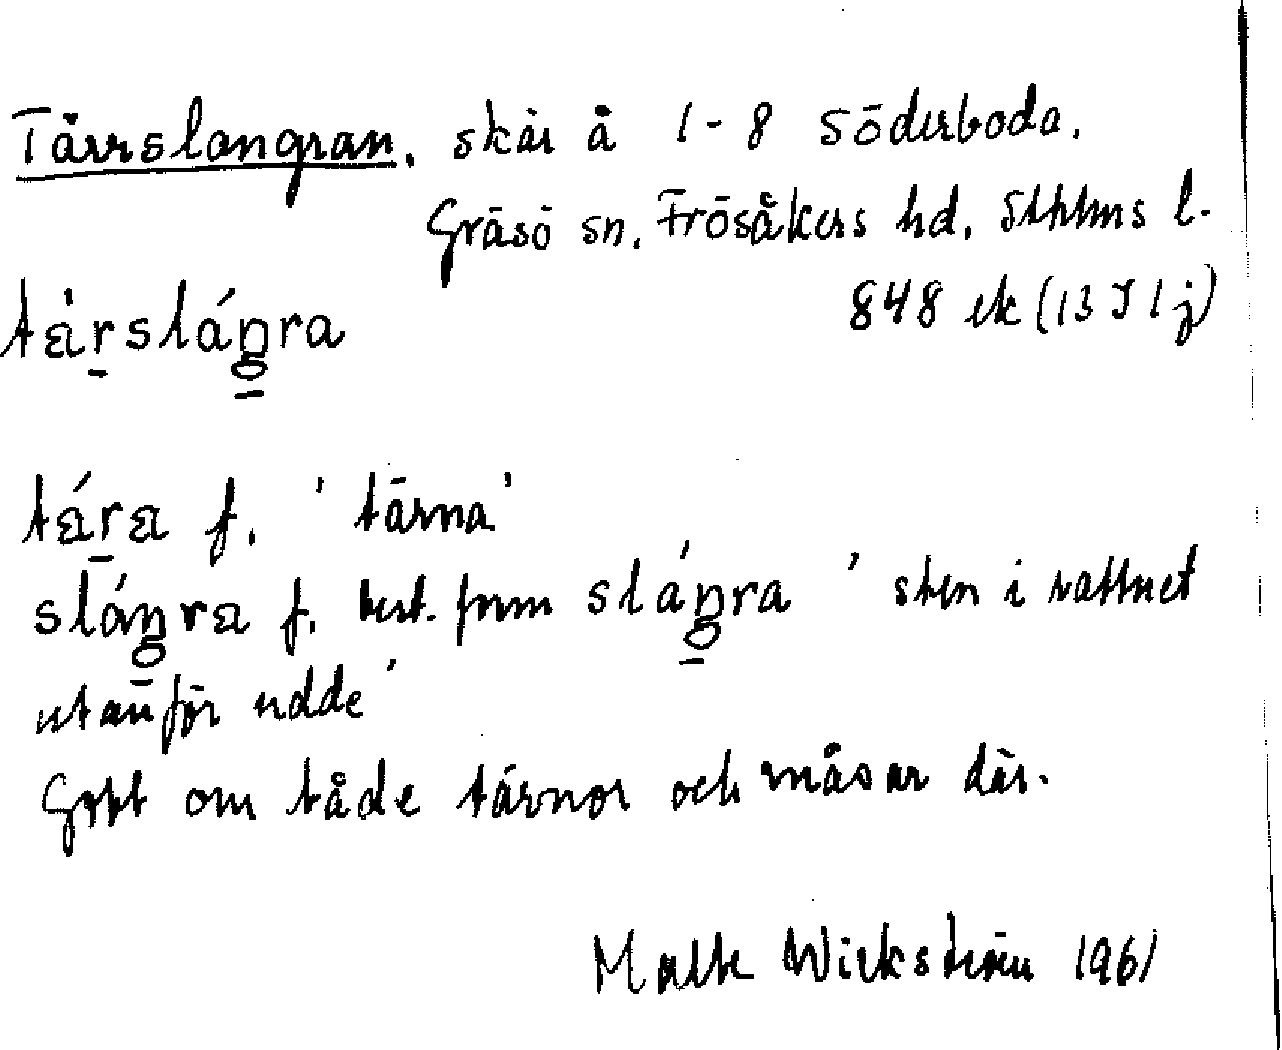 Tärrslangran. skär å 1-8 Söderboda.
Gräsö sn. Frösåkers hd. Sthlms l.
848 ek (13 I 1 j)
tä̀rsláŋra
tä́ra f. 'tärna'
sláŋra f. best. form sláŋra 'sten i vattnet
utanför udde'
Gott om både tärnor och måsar där.
Malte Wickström 1961